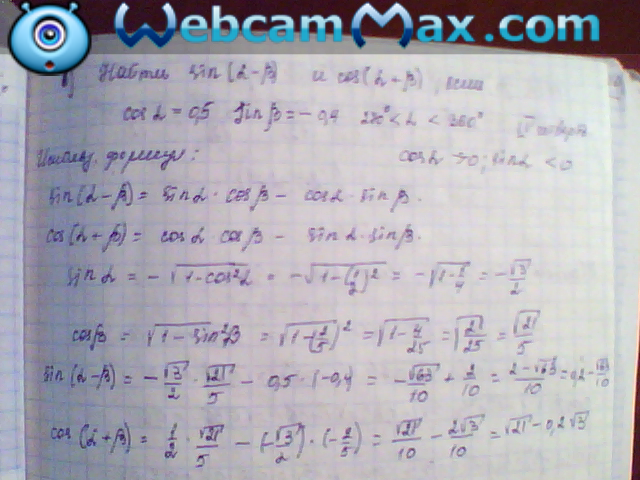 WebcamMax.com
1) Найти sin(α-β) и cos(α+β), если
cos α = 0,5 sin β = -0,4 270° < α < 360°
IV четверть
Использ. формулы: cos α > 0; sin α < 0
sin(α-β) = sin α · cos β - cos α · sin β.
cos(α+β) = cos α · cos β - sin α · sin β.
sin α = -√(1-cos²α) = -√(1-(1/2)²) = -√(1-1/4) = -√3/2
cos β = √(1-sin²β) = √(1-(2/5)²) = √(1-4/25) = √(21/25) = √21/5
sin(α-β) = -√3/2 · √21/5 - 0,5 · (-0,4) = -√63/10 + 2/10 = (2-√63)/10 = 0,2-√63/10
cos(α+β) = 1/2 · √21/5 - (-√3/2) · (-2/5) = √21/10 - 2√3/10 = √21 - 0,2√3